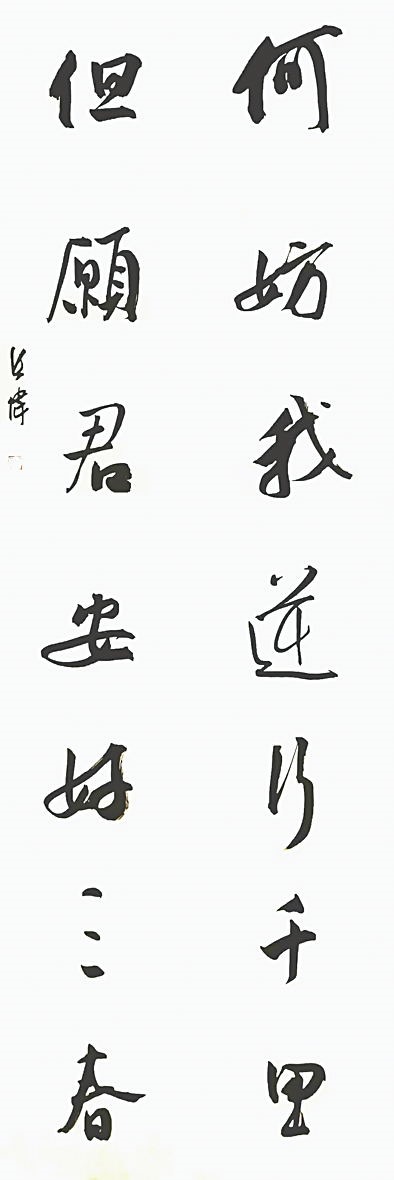 何妨我逆行千里
但願君安好三春